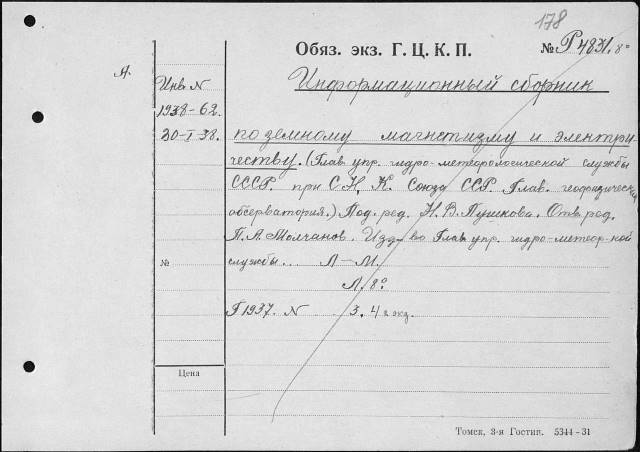 178
Обяз. экз. Г. Ц. К. П. № Р 4831. 8°
А.
Информационный сборник
Инв. N
1938-62.
20-I-38.
по земному магнетизму и электри-
честву. (Глав. упр. гидро-метеорологической службы
СССР. при С.Н.К. Союза ССР. Глав. геофизическая
обсерватория.) Под. ред. Н.В. Пушкова. Отв. ред.
П.А. Молчанов. Изд-во Глав. упр. гидро-метеор-кой
№ службы... Л-М.
Л. 8°
Г 1937. N 3. 4 2 экз.
Цена
Томск, 3-я Гостип. 5344-31